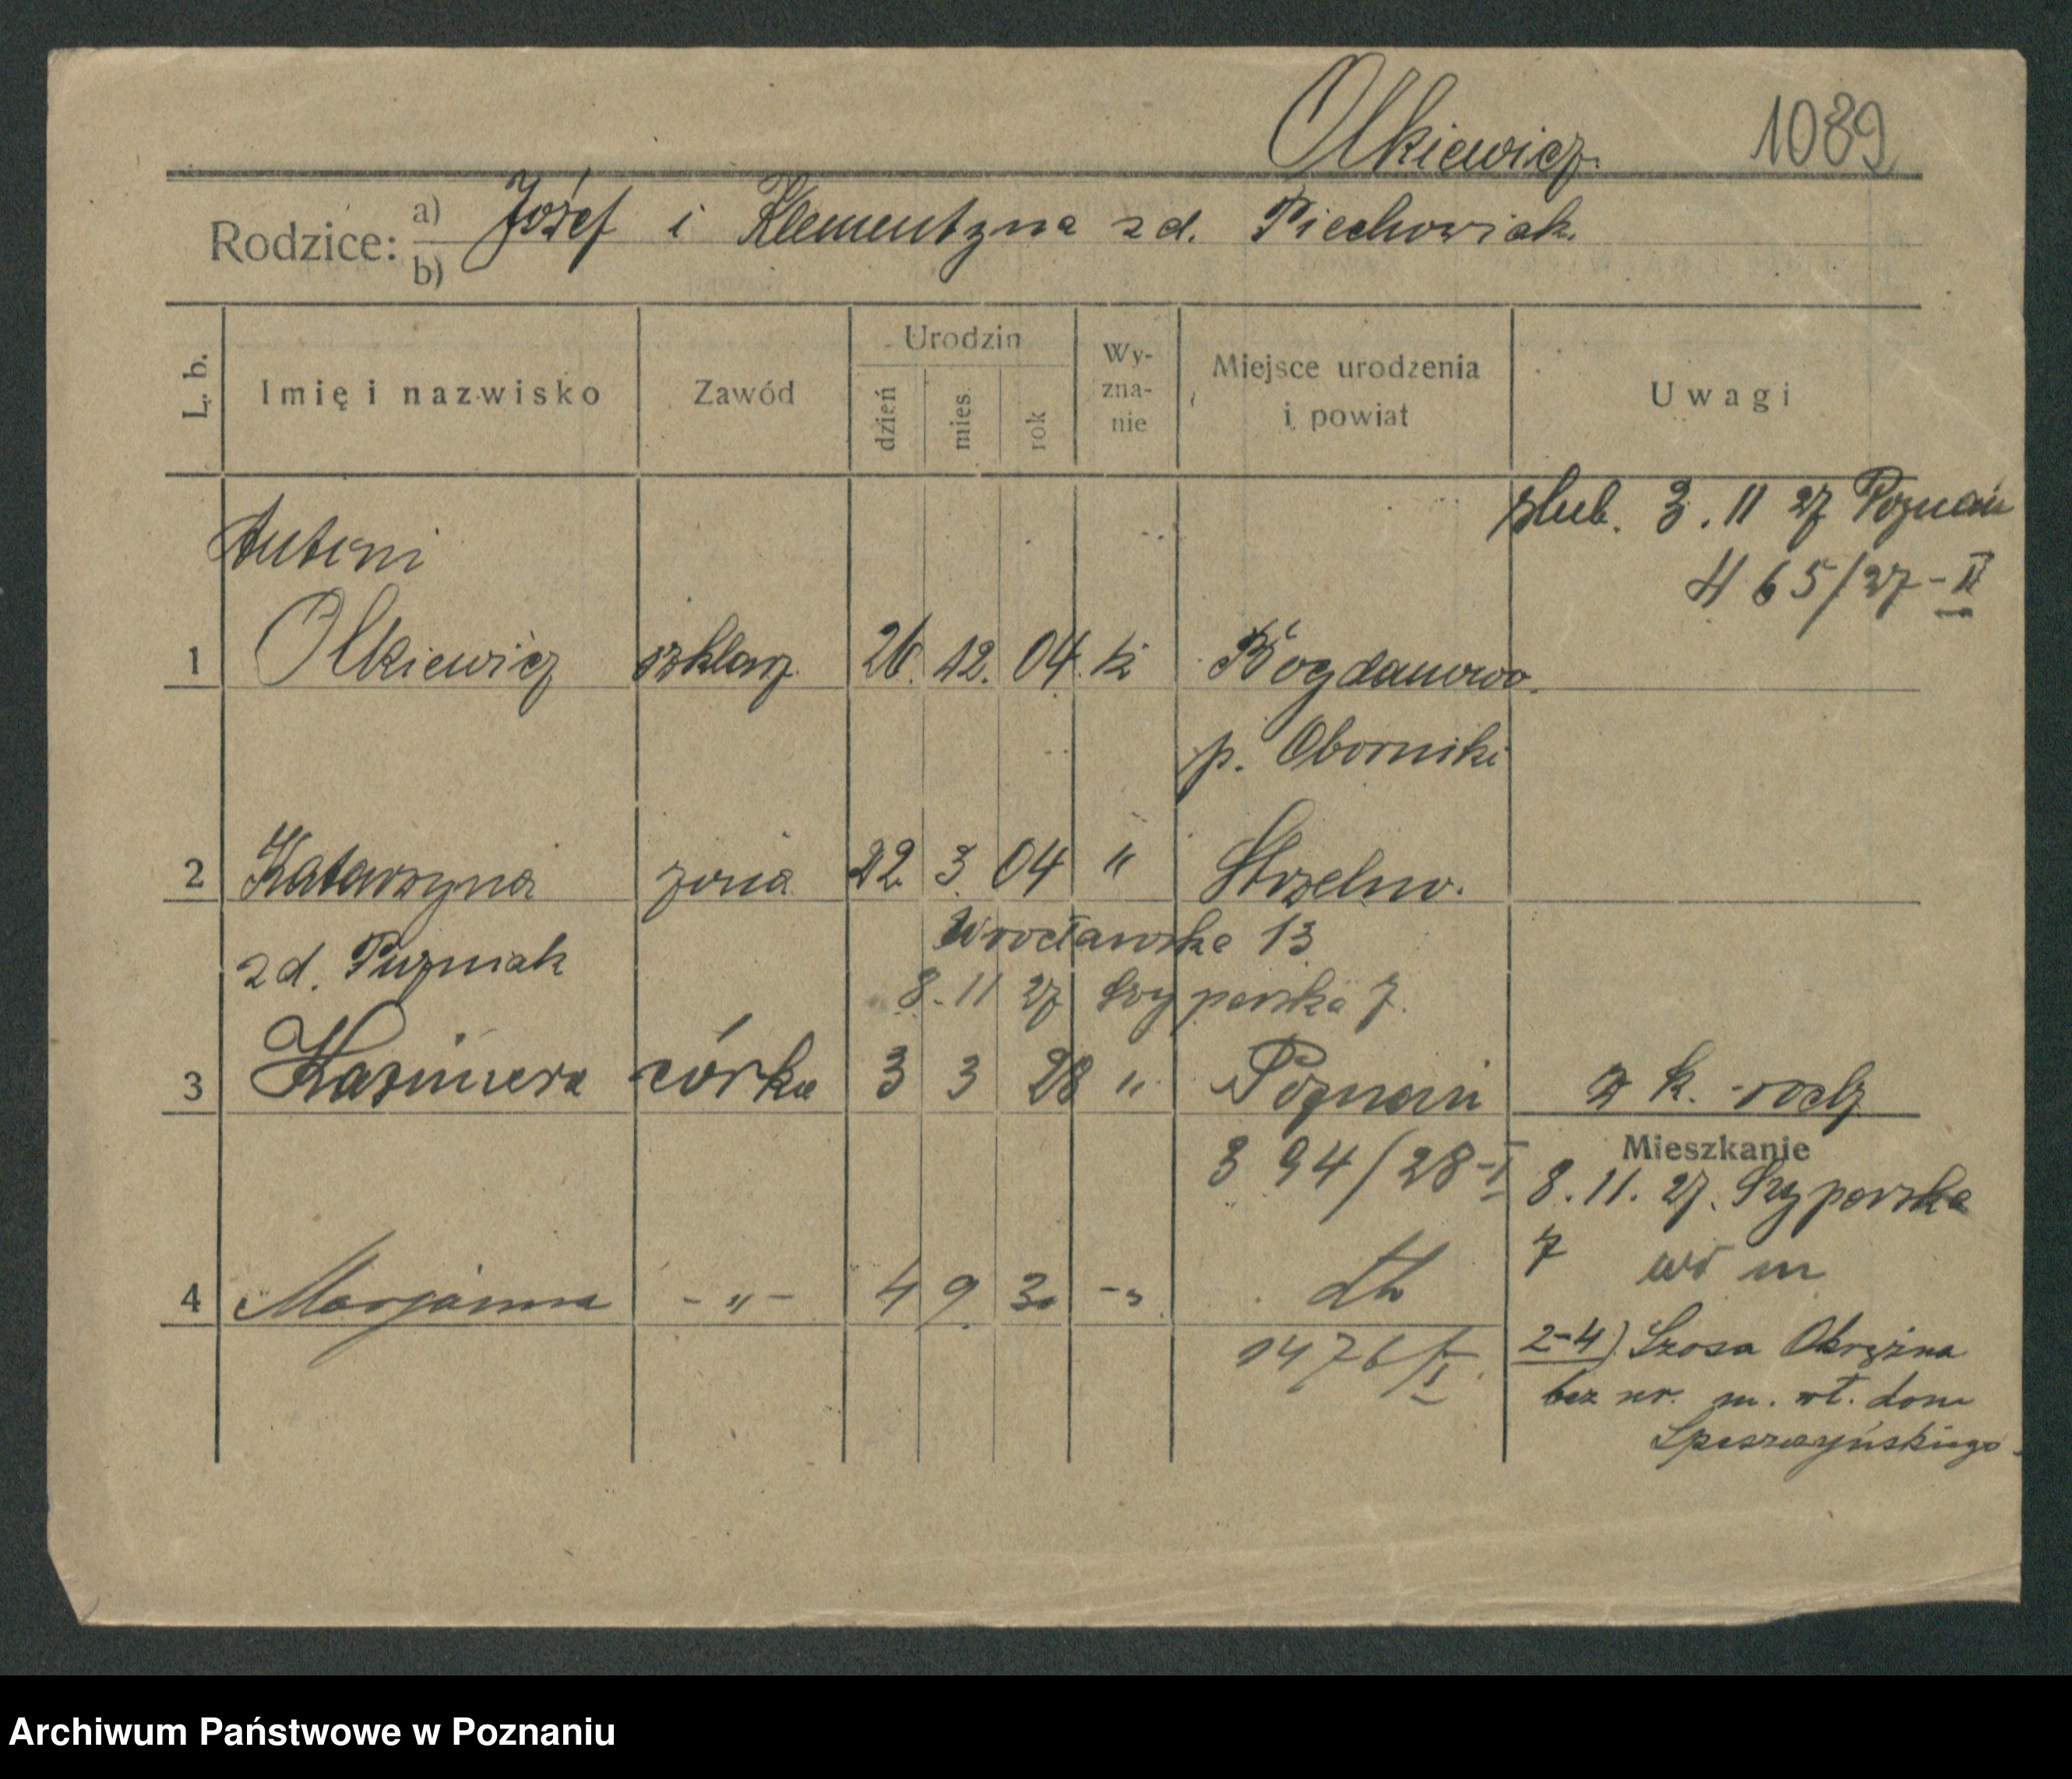 Olkiewicz.
1089
Rodzice: a) Józef i Klementyna zd. Piechowiak.
b)
L. b.
Imię i nazwisko
Zawód
Urodzin
dzień
mies.
rok
Wy-
zna-
nie
Miejsce urodzenia
i powiat
Uwagi
ślub. 3. 11 27 Poznań
465/27-II
Antoni
1 Olkiewicz szklarz 26. 12. 04. k Bogdanowo.
p. Oborniki
2 Katarzyna żona 22 3 04 " Strzelno.
zd. Puzniak
Wrocławska 13
8. 11 27 Szyperska 7.
3 Kazimiera córka 3 3 28 " Poznań z k. rodz
394/28-I
Mieszkanie
8. 11. 27. Szyperska
7 wł m
4 Marjanna -"- 4 9 30 -"
1476/I
2-4) Szosa Okrężna
bez nr. m. wł. dom